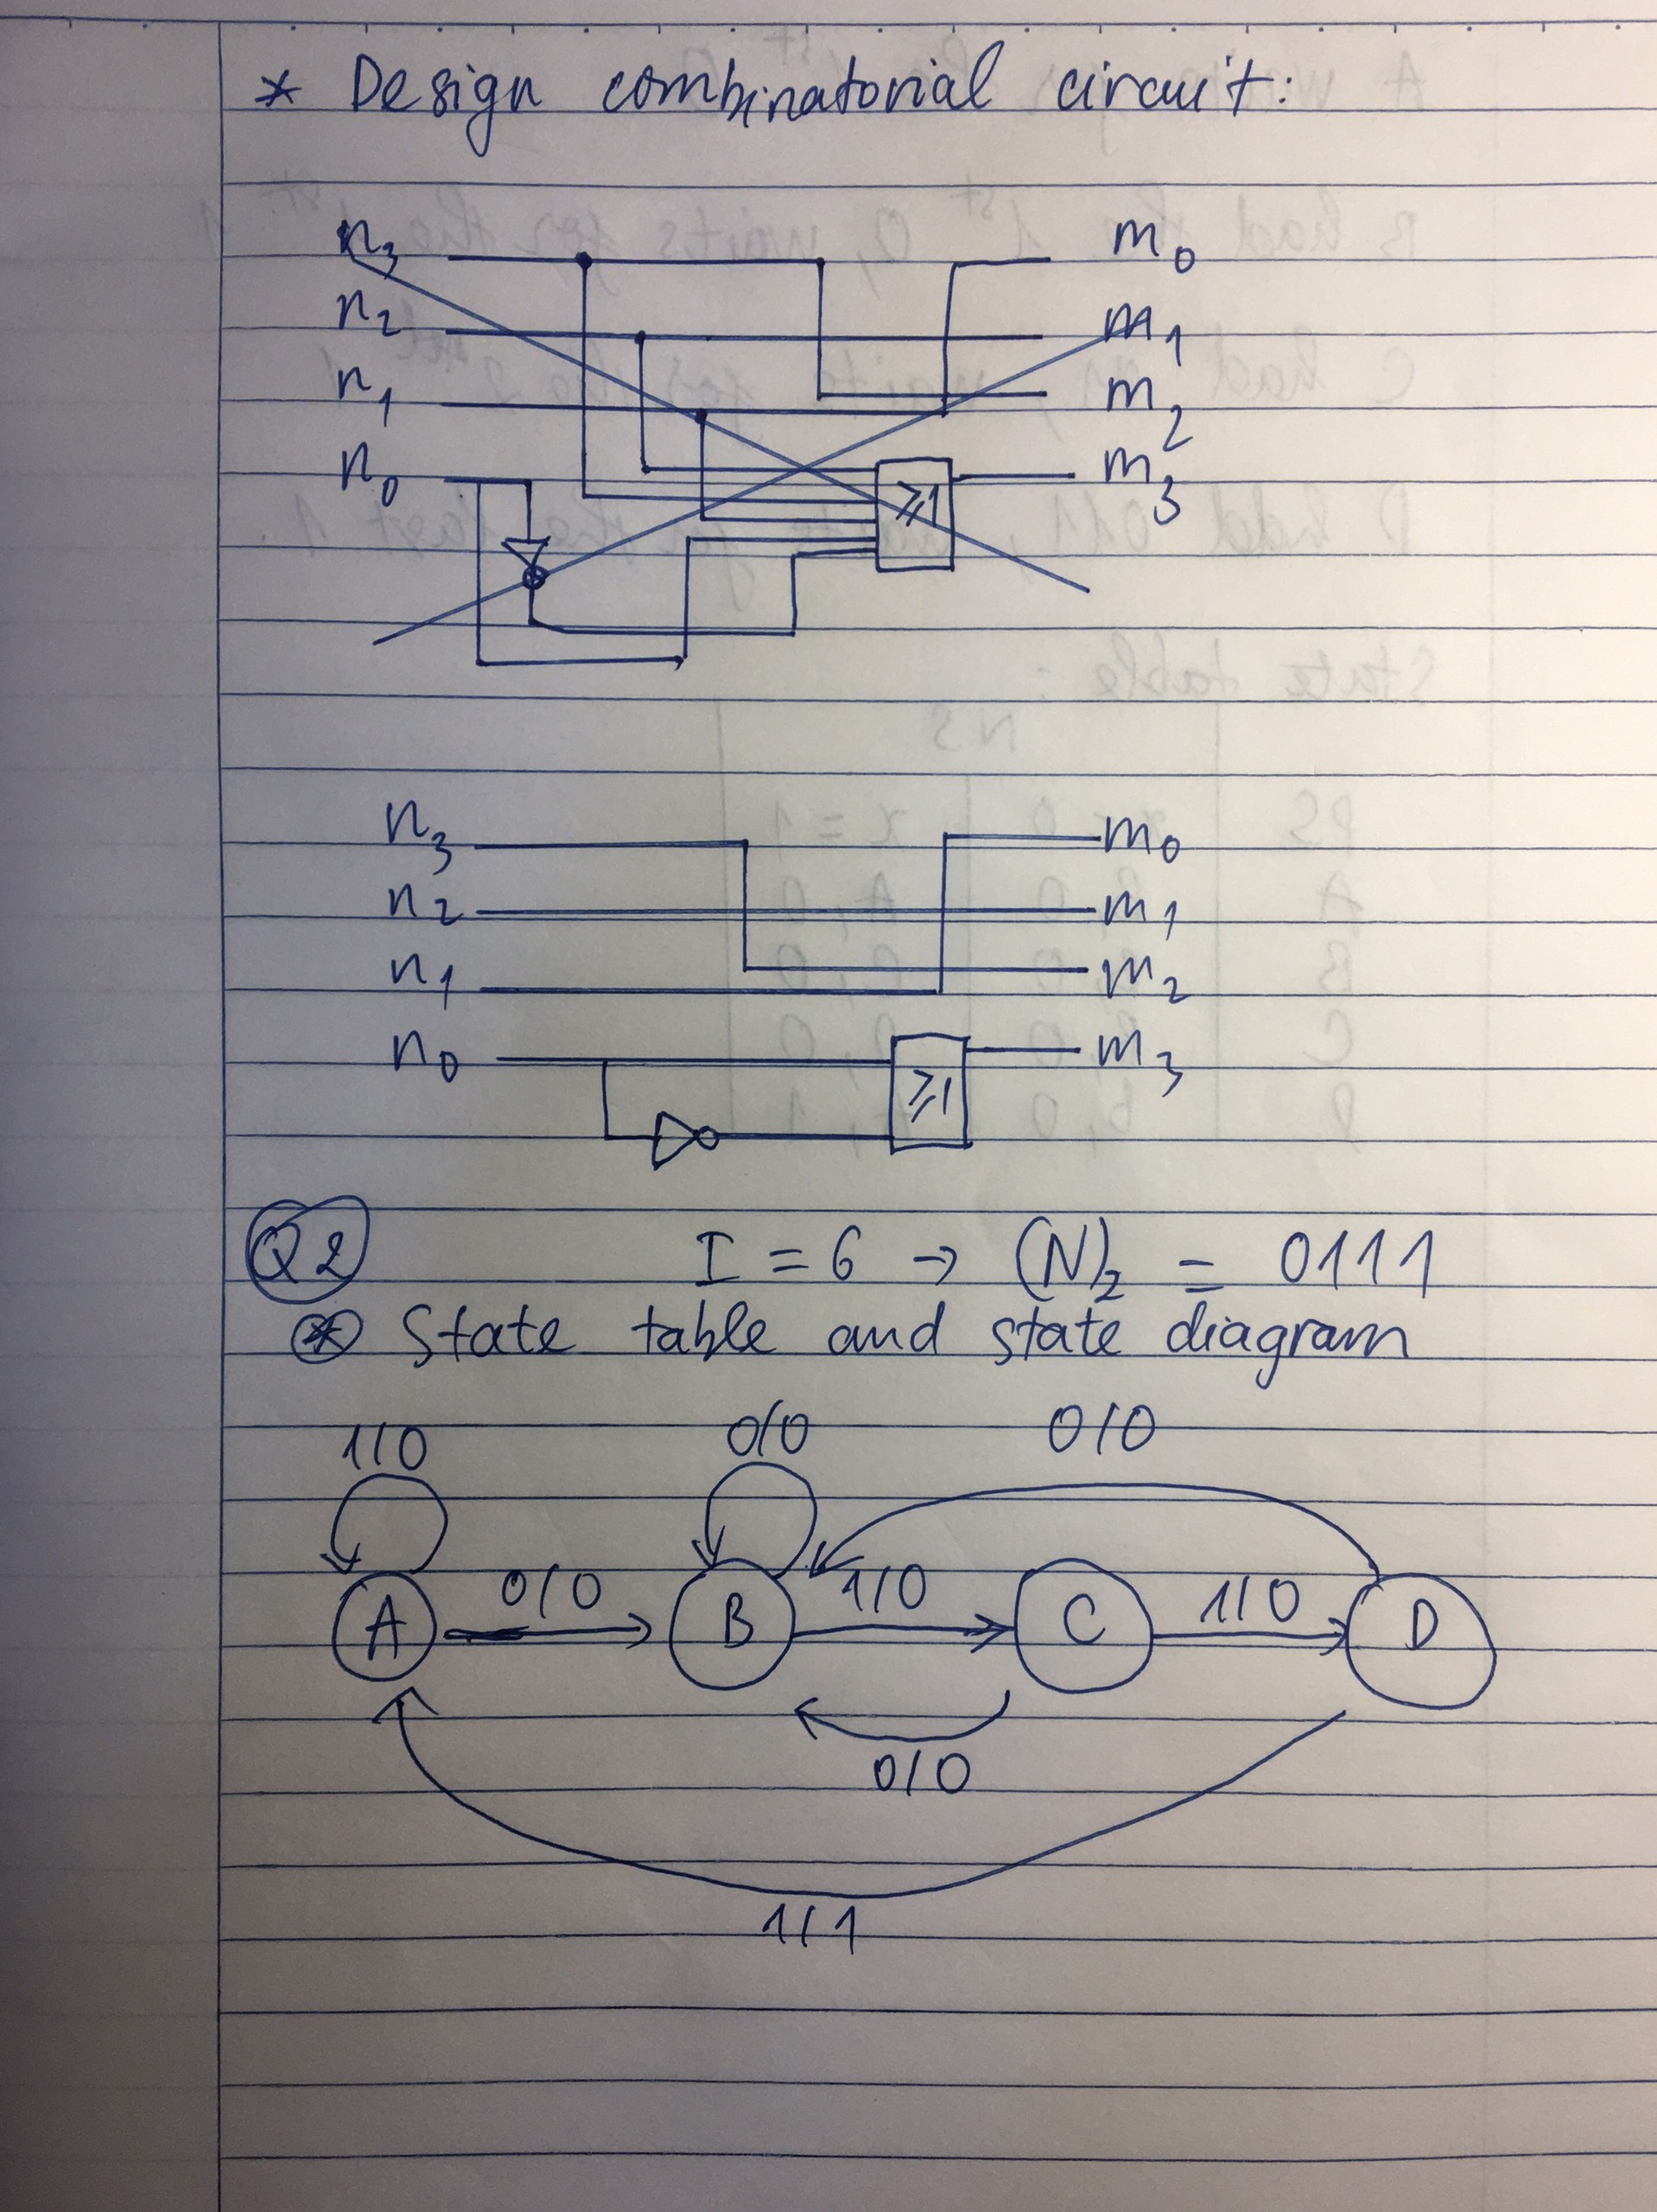 * Design combinatorial circuit:
n3 m0
n2 m1
n1 m2
n0 m3
≥1
n3 m0
n2 m1
n1 m2
n0 m3
≥1
Q2 I = 6 → (N)2 = 0111
* State table and state diagram
1/0 0/0 0/0
0/0 1/0 1/0
A B C D
0/0
1/1